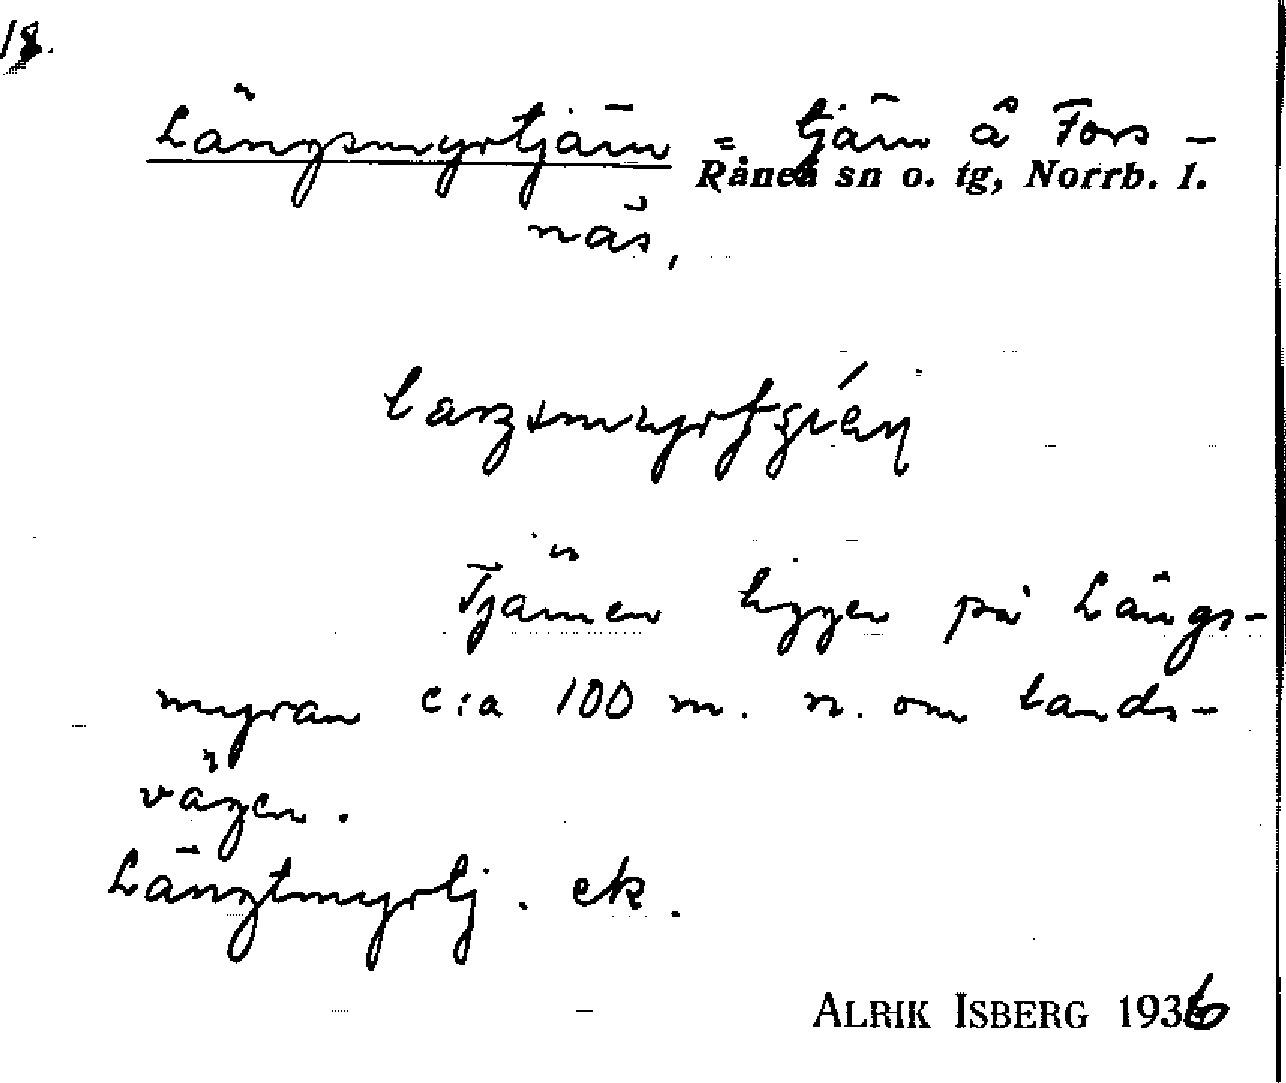 Längsmyrtjärn = tjärn å Fors-
Råneå sn o. tg, Norrb. l.
näs,
Tjärnen ligger på Längs-
myran c:a 100 m. n. om lands-
vägen.
Längtmyrtj. ek.
ALRIK ISBERG 1936